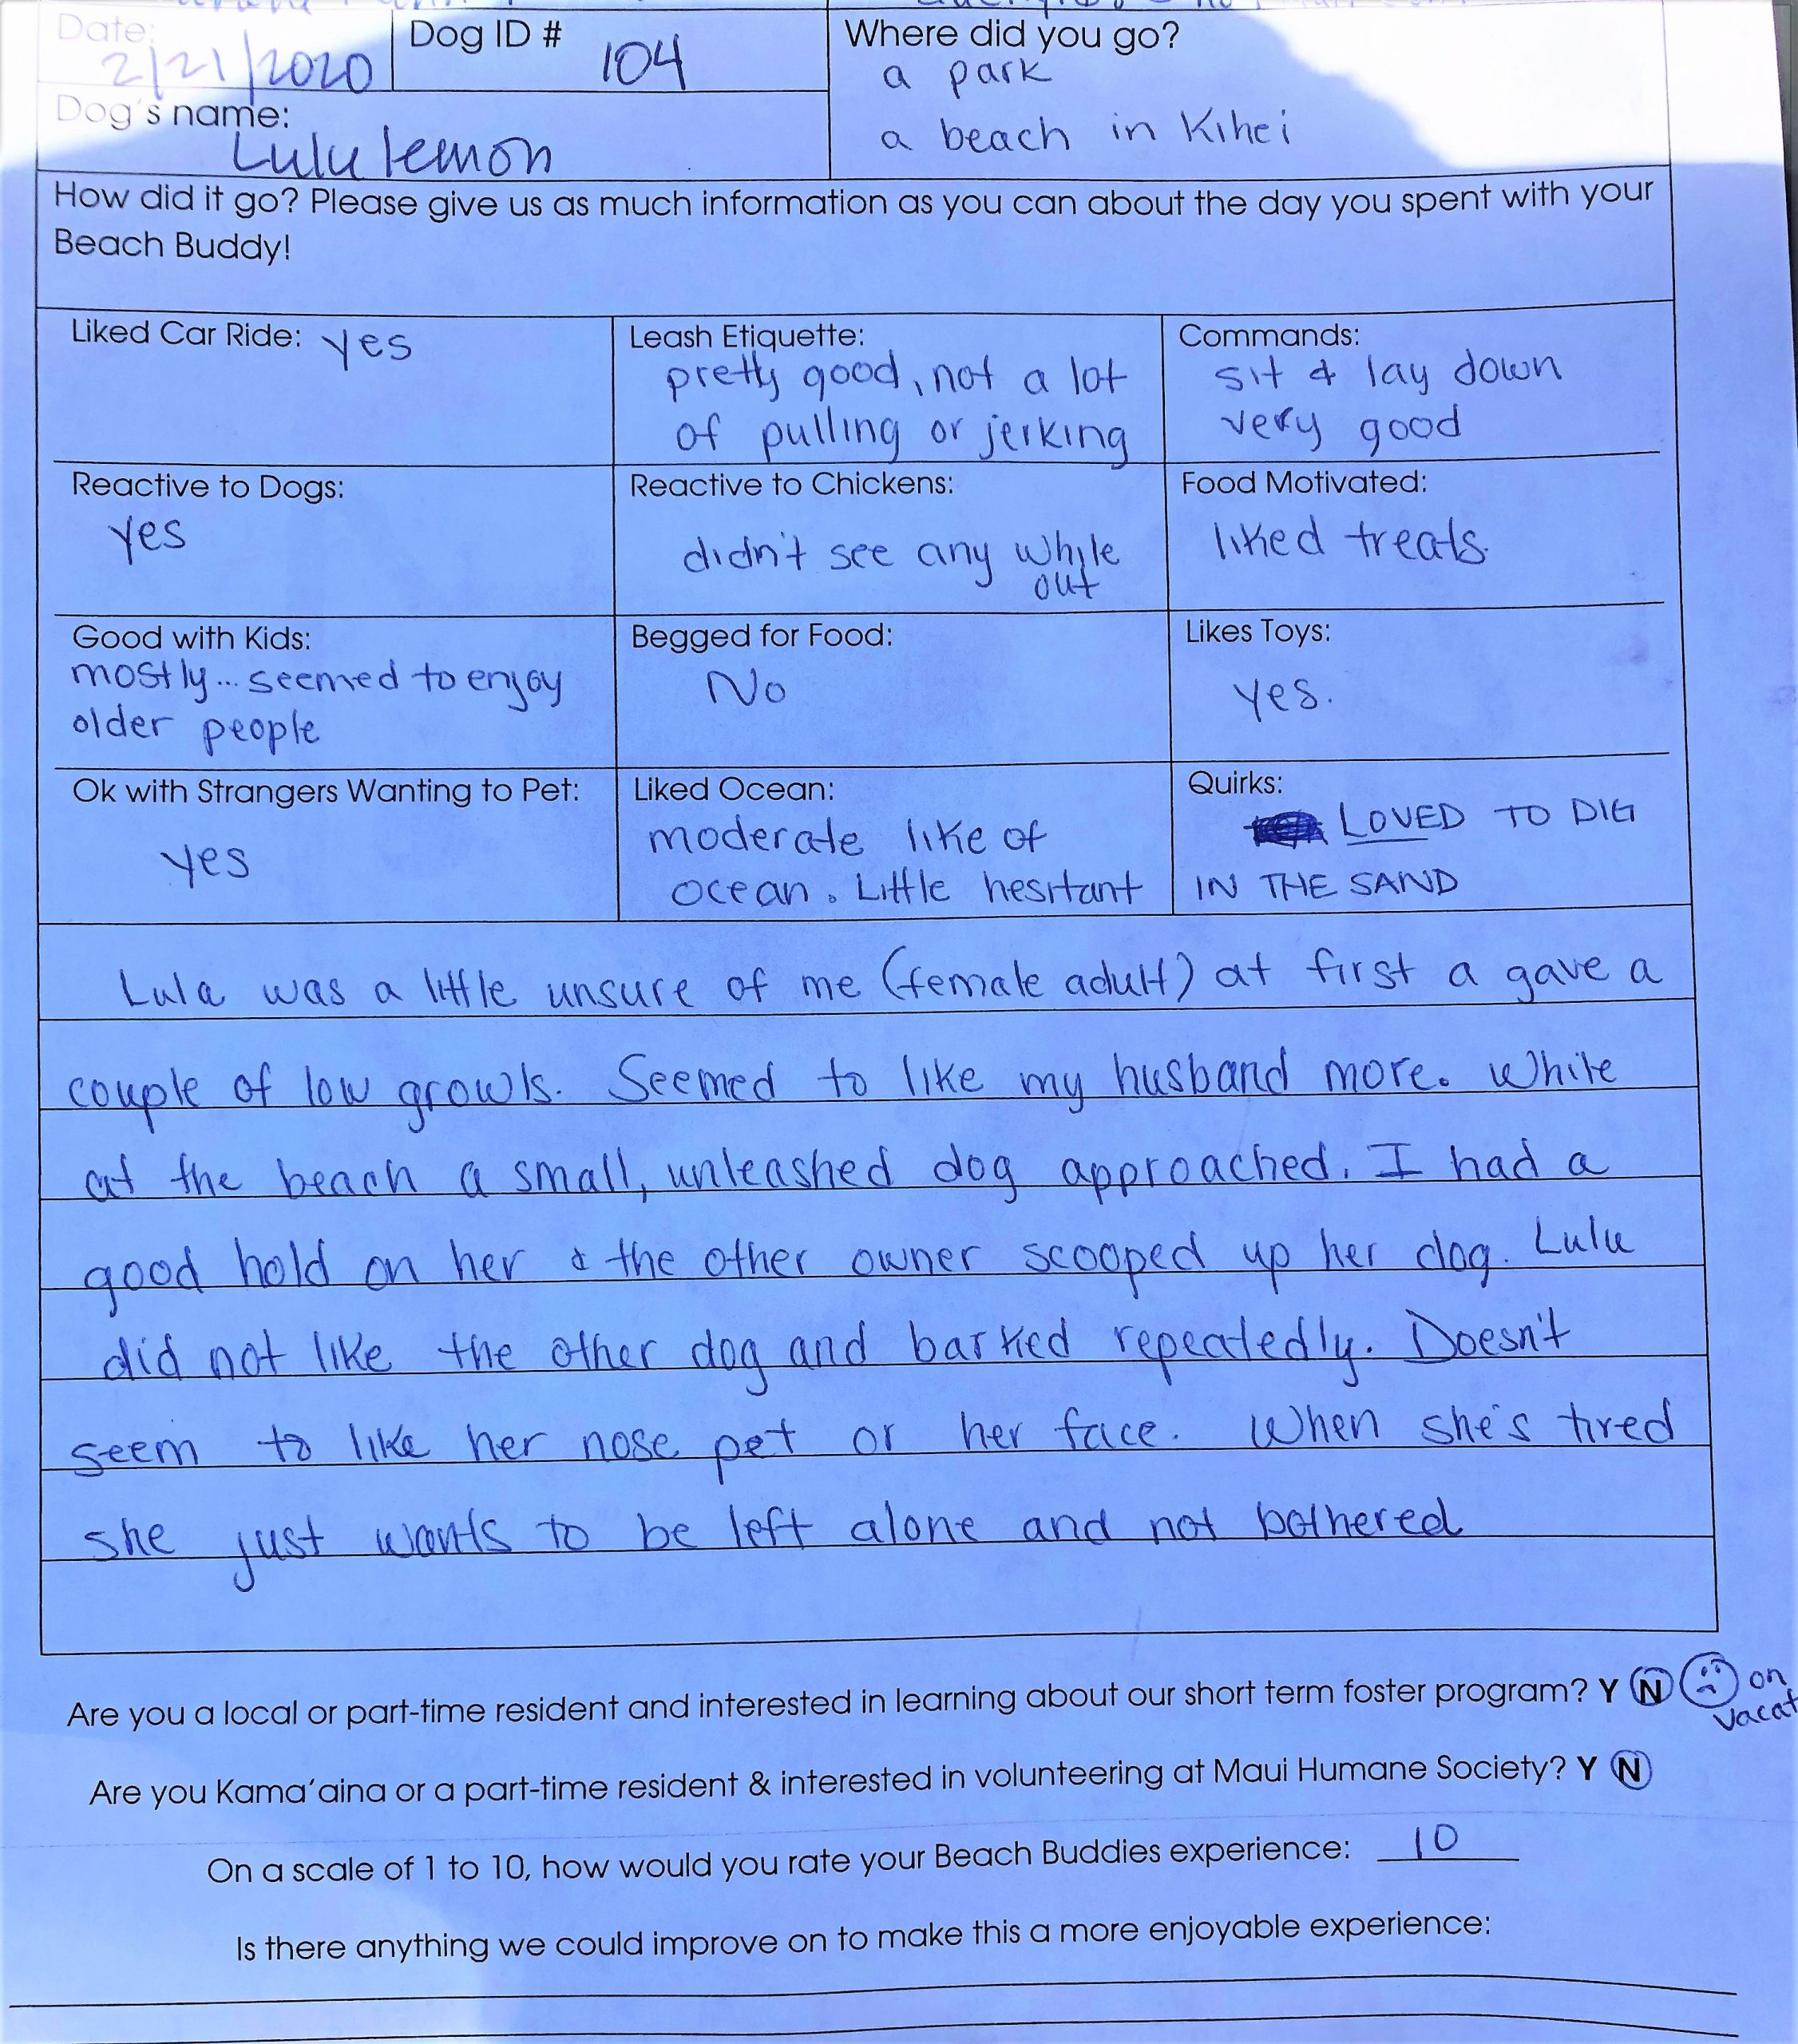 Date: 2/21/2020
Dog ID # 104
Where did you go?
a park
a beach in Kihei
Dog's name:
Lulu lemon
How did it go? Please give us as much information as you can about the day you spent with your
Beach Buddy!
Liked Car Ride: yes
Leash Etiquette:
pretty good, not a lot
of pulling or jerking
Commands:
sit & lay down
very good
Reactive to Dogs:
yes
Reactive to Chickens:
didn't see any while
out
Food Motivated:
liked treats.
Good with Kids:
mostly... seemed to enjoy
older people
Begged for Food:
No
Likes Toys:
yes.
Ok with Strangers Wanting to Pet:
yes
Liked Ocean:
moderate like of
ocean. Little hesitant
Quirks:
LOVED TO DIG
IN THE SAND
Lula was a little unsure of me (female adult) at first a gave a
couple of low growls. Seemed to like my husband more. While
at the beach a small, unleashed dog approached. I had a
good hold on her & the other owner scooped up her dog. Lulu
did not like the other dog and barked repeatedly. Doesn't
seem to like her nose pet or her face. When she's tired
she just wants to be left alone and not bothered
Are you a local or part-time resident and interested in learning about our short term foster program? Y N on
vacat
Are you Kama'aina or a part-time resident & interested in volunteering at Maui Humane Society? Y N
On a scale of 1 to 10, how would you rate your Beach Buddies experience: 10
Is there anything we could improve on to make this a more enjoyable experience: